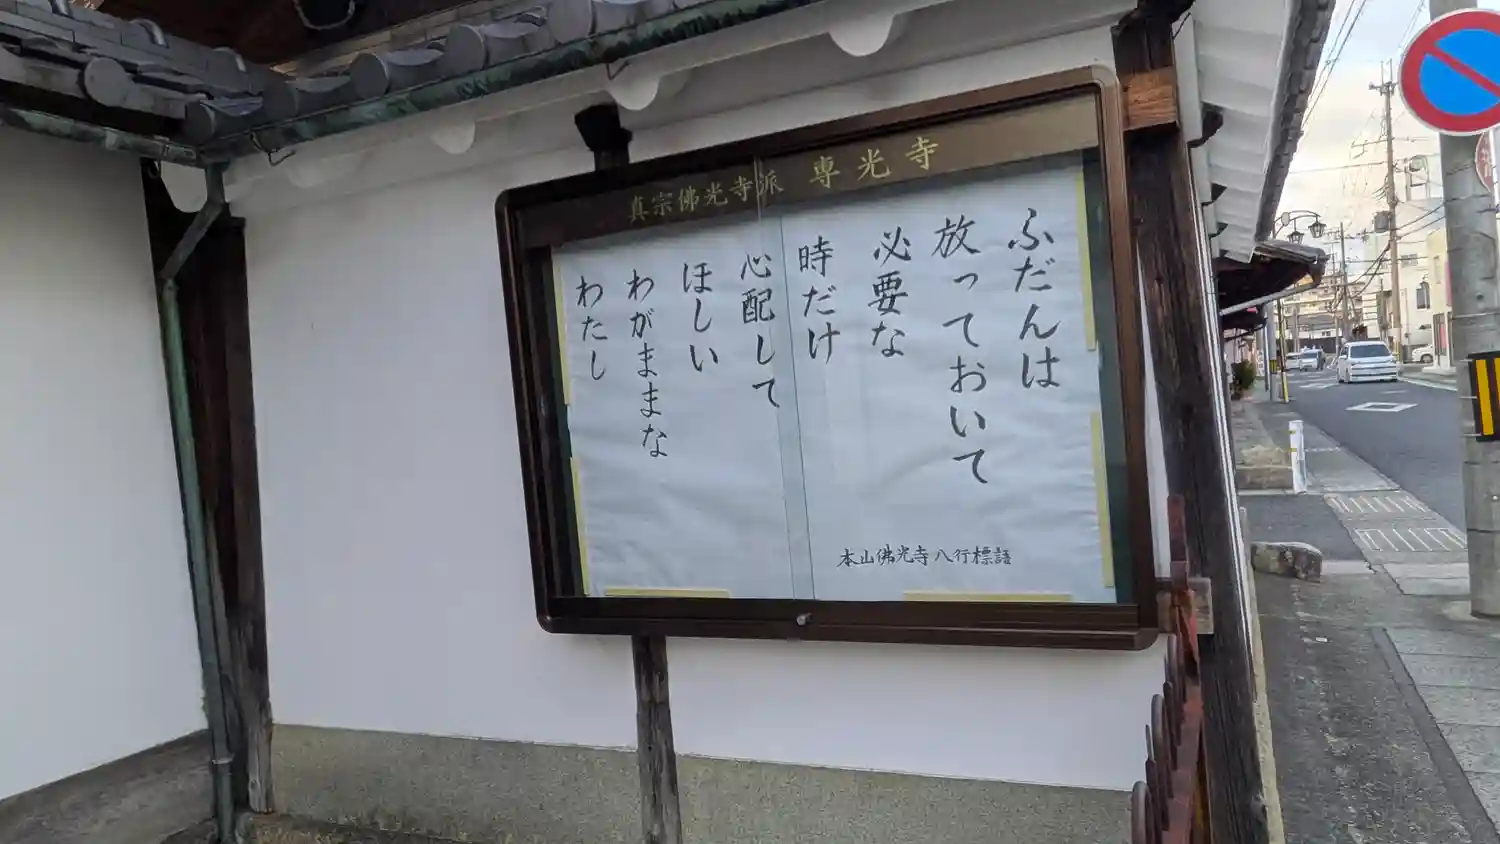 真宗佛光寺派 専光寺
ふだんは
放っておいて
必要な
時だけ
心配して
ほしい
わがままな
わたし
本山佛光寺八行標語